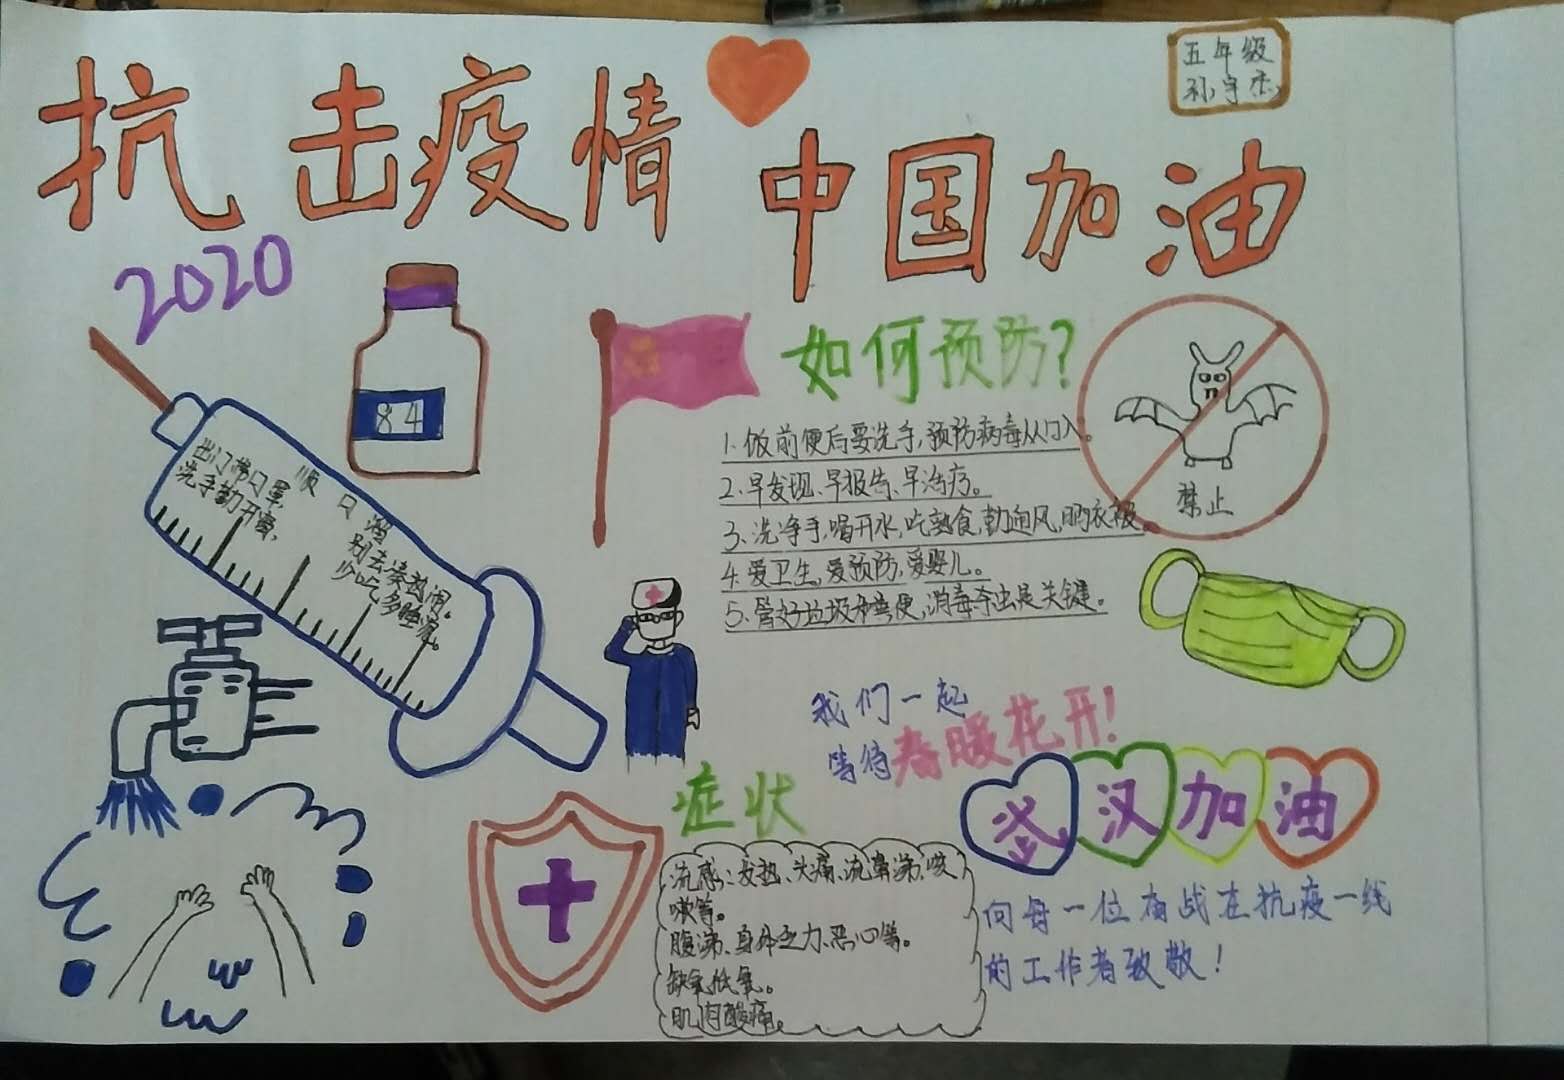 抗击疫情 中国加油
五年级
孙宇杰
2020
84
顺口溜
出门带口罩,
洗手勤开窗,
别去凑热闹,
少吃多睡觉。
如何预防?
1.饭前便后要洗手,预防病毒从口入。
2.早发现、早报告、早治疗。
3、洗净手,喝开水,吃熟食,勤通风,晒衣被。
4.爱卫生,爱预防,爱婴儿。
5、管好垃圾和粪便,消毒杀虫是关键。
禁止
我们一起
等待春暖花开!
武汉加油
向每一位奋战在抗疫一线
的工作者致敬!
症状
流感:发热、头痛、流鼻涕、咳
嗽等。
腹涕、身体乏力、恶心等。
缺氧低氧。
肌肉酸痛。